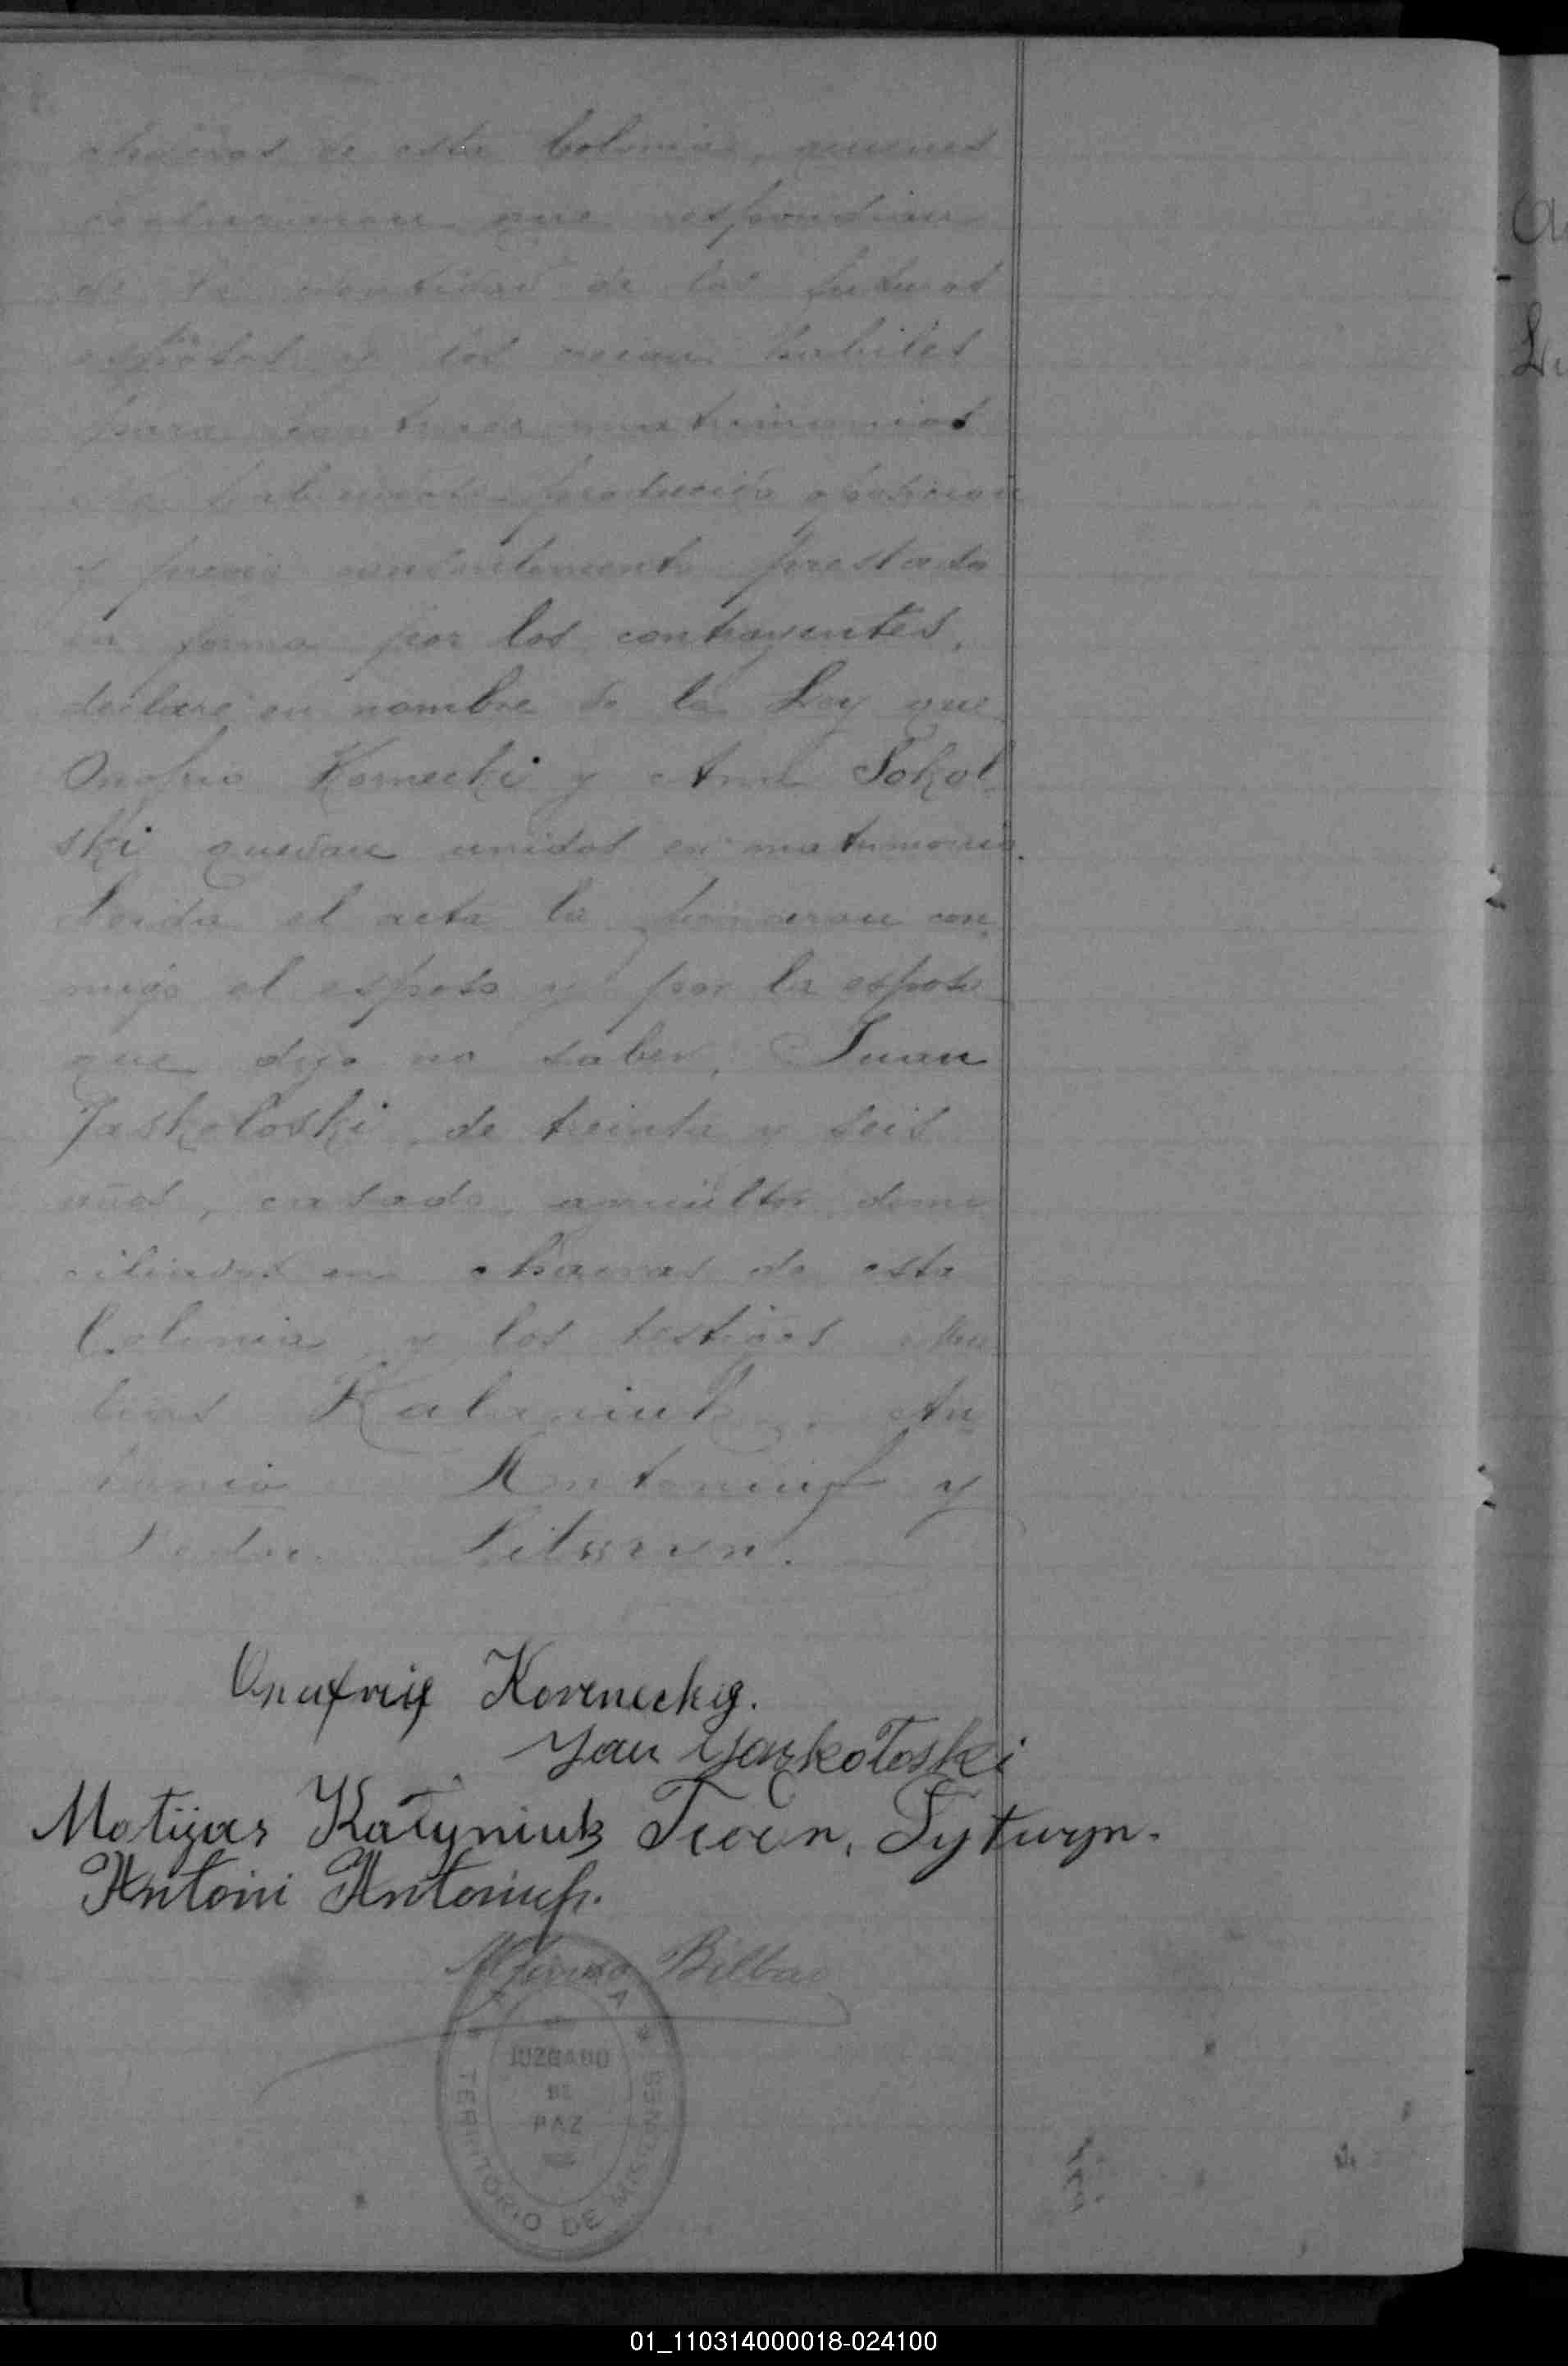 chacras de esta Colonia, quienes
declararon que respondian
de la identidad de los futuros
esposos y los creian habiles
para contraer matrimonio
producido oposicion
y previo consentimiento prestado
en forma por los contrayentes,
declaré en nombre de la Ley que
Onofrio Kornecki y Ana Sokol-
ski quedan unidos en matrimonio.
Leida el acta la firmaron con-
migo el esposo y por la esposa
que dijo no saber, Juan
Jaskoloski, de treinta y seis
años, casado, agricultor, domi
ciliado en chacras de esta
Colonia y los testigos Ma
tias Kalaniuk, An-
tonio Antoniuf y
Pedro
Onufrij Koreneckij.
Jan Jaskołoski
Motijas Kałyniuk Teodor, Tyturyn.
Antoni Antoniuk.
Alfonso Bilbao
JUZGADO
DE
PAZ
TERRITORIO DE MISIONES
A
L
01_110314000018-024100